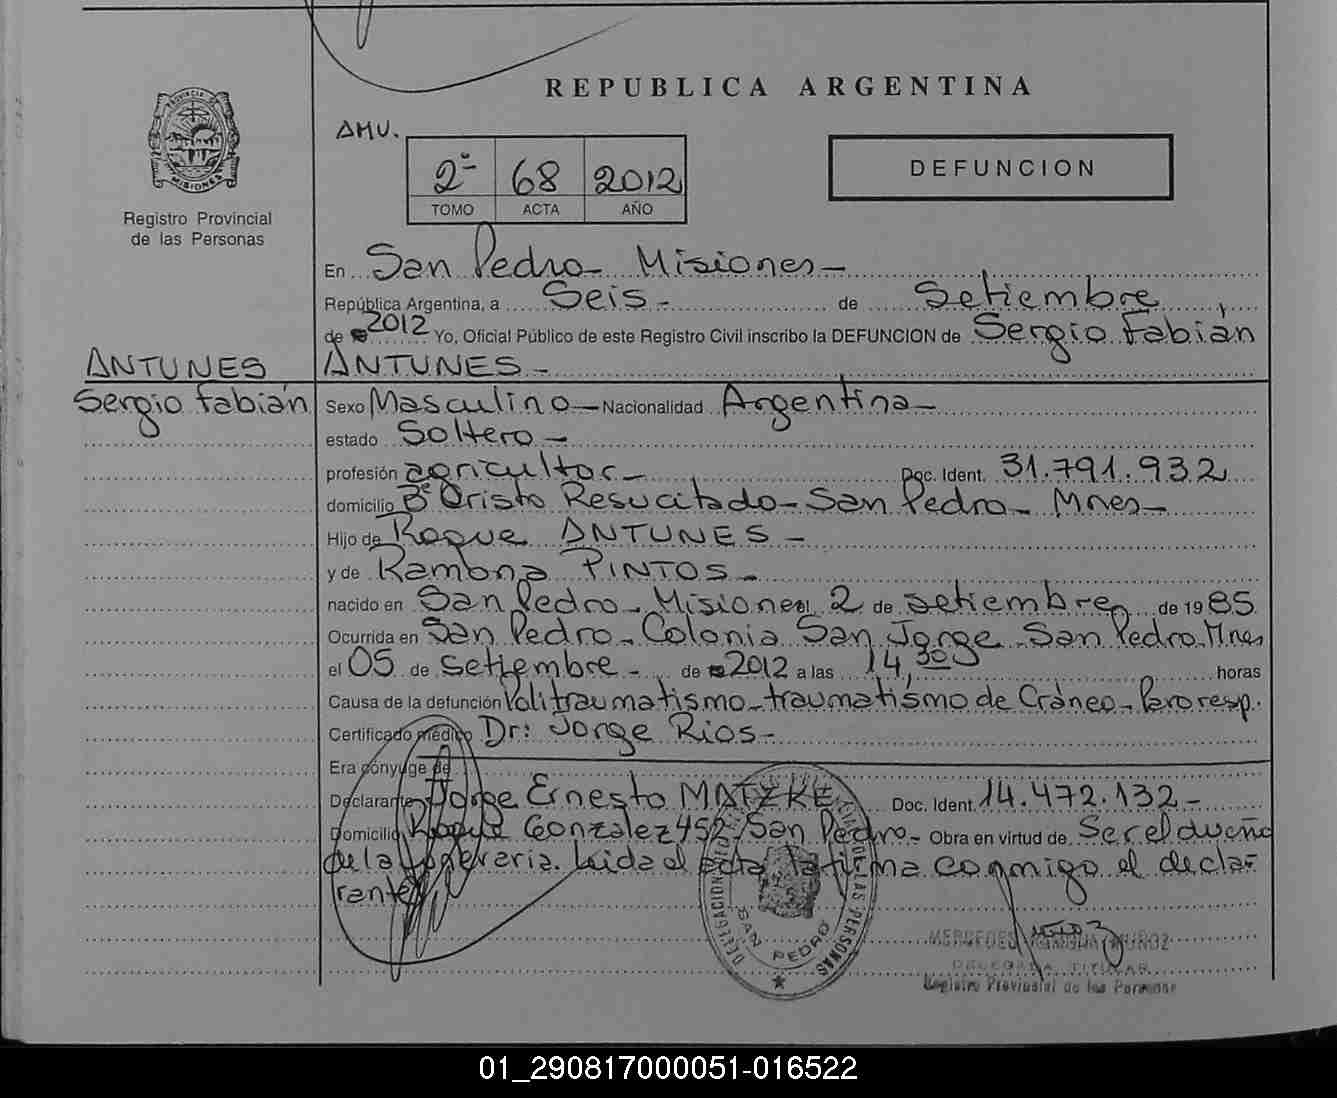 REPUBLICA ARGENTINA
AMU.
2º 68 2012
TOMO ACTA AÑO
DEFUNCION
PROVINCIA DE
MISIONES
Registro Provincial
de las Personas
En San Pedro - Misiones -
República Argentina, a Seis - de Setiembre
de 2012 Yo, Oficial Público de este Registro Civil inscribo la DEFUNCION de Sergio Fabián
ANTUNES -
ANTUNES
Sergio Fabián
Sexo Masculino - Nacionalidad Argentina -
estado Soltero -
profesión agricultor - Doc. Ident. 31.791.932
domicilio Bº Cristo Resucitado - San Pedro - Mnes -
Hijo de Roque ANTUNES -
y de Ramona PINTOS -
nacido en San Pedro - Misiones el 2 de setiembre de 1985
Ocurrida en San Pedro - Colonia San Jorge - San Pedro - Mnes
el 05 de setiembre - de 2012 a las 14,30 horas
Causa de la defunción Politraumatismo - traumatismo de Cráneo - Paro resp.
Certificado médico Dr: Jorge Rios -
Era cónyuge de
Declarante Jorge Ernesto MATZKE Doc. Ident. 14.472.132 -
Domicilio Roque Gonzalez 452 - San Pedro - Obra en virtud de Ser el dueño
de la Leida el acta la firma conmigo el decla-
rante
DELEGACION DE LAS PERSONAS
SAN PEDRO
MERCEDES RAMONA MUÑOZ
DELEGADA TITULAR
Registro Provincial de las Personas
01_290817000051-016522